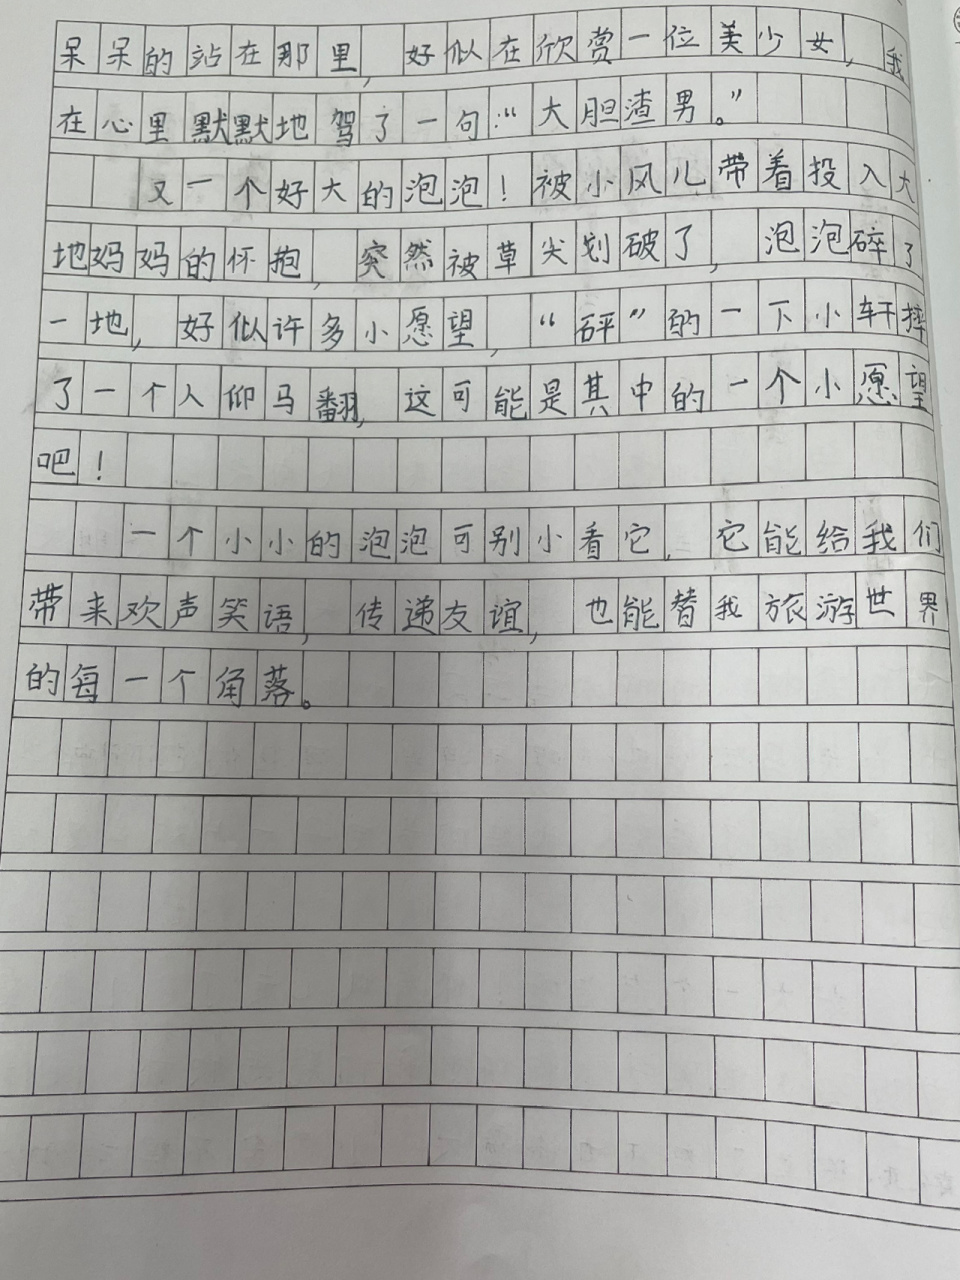 呆呆的站在那里，好似在欣赏一位美少女，我
在心里默默地驾了一句：“大胆渣男。”
又一个好大的泡泡！被小风儿带着投入大
地妈妈的怀抱，突然被草尖划破了，泡泡碎了
一地，好似许多小愿望，“砰”的一下小轩摔
了一个人仰马翻，这可能是其中的一个小愿望
吧！
一个小小的泡泡可别小看它，它能给我们
带来欢声笑语，传递友谊，也能替我旅游世界
的每一个角落。